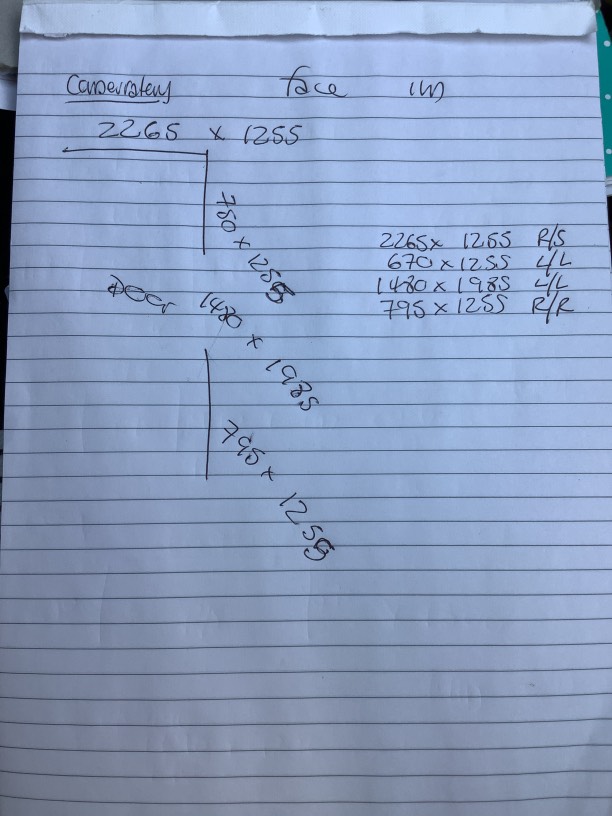 Conservatory face 1m
2265 x 1255
780 x 1255
Door 1480 x 1985
795 x 1255
2265 x 1255 R/S
670 x 1255 L/L
1480 x 1985 L/L
795 x 1255 R/R